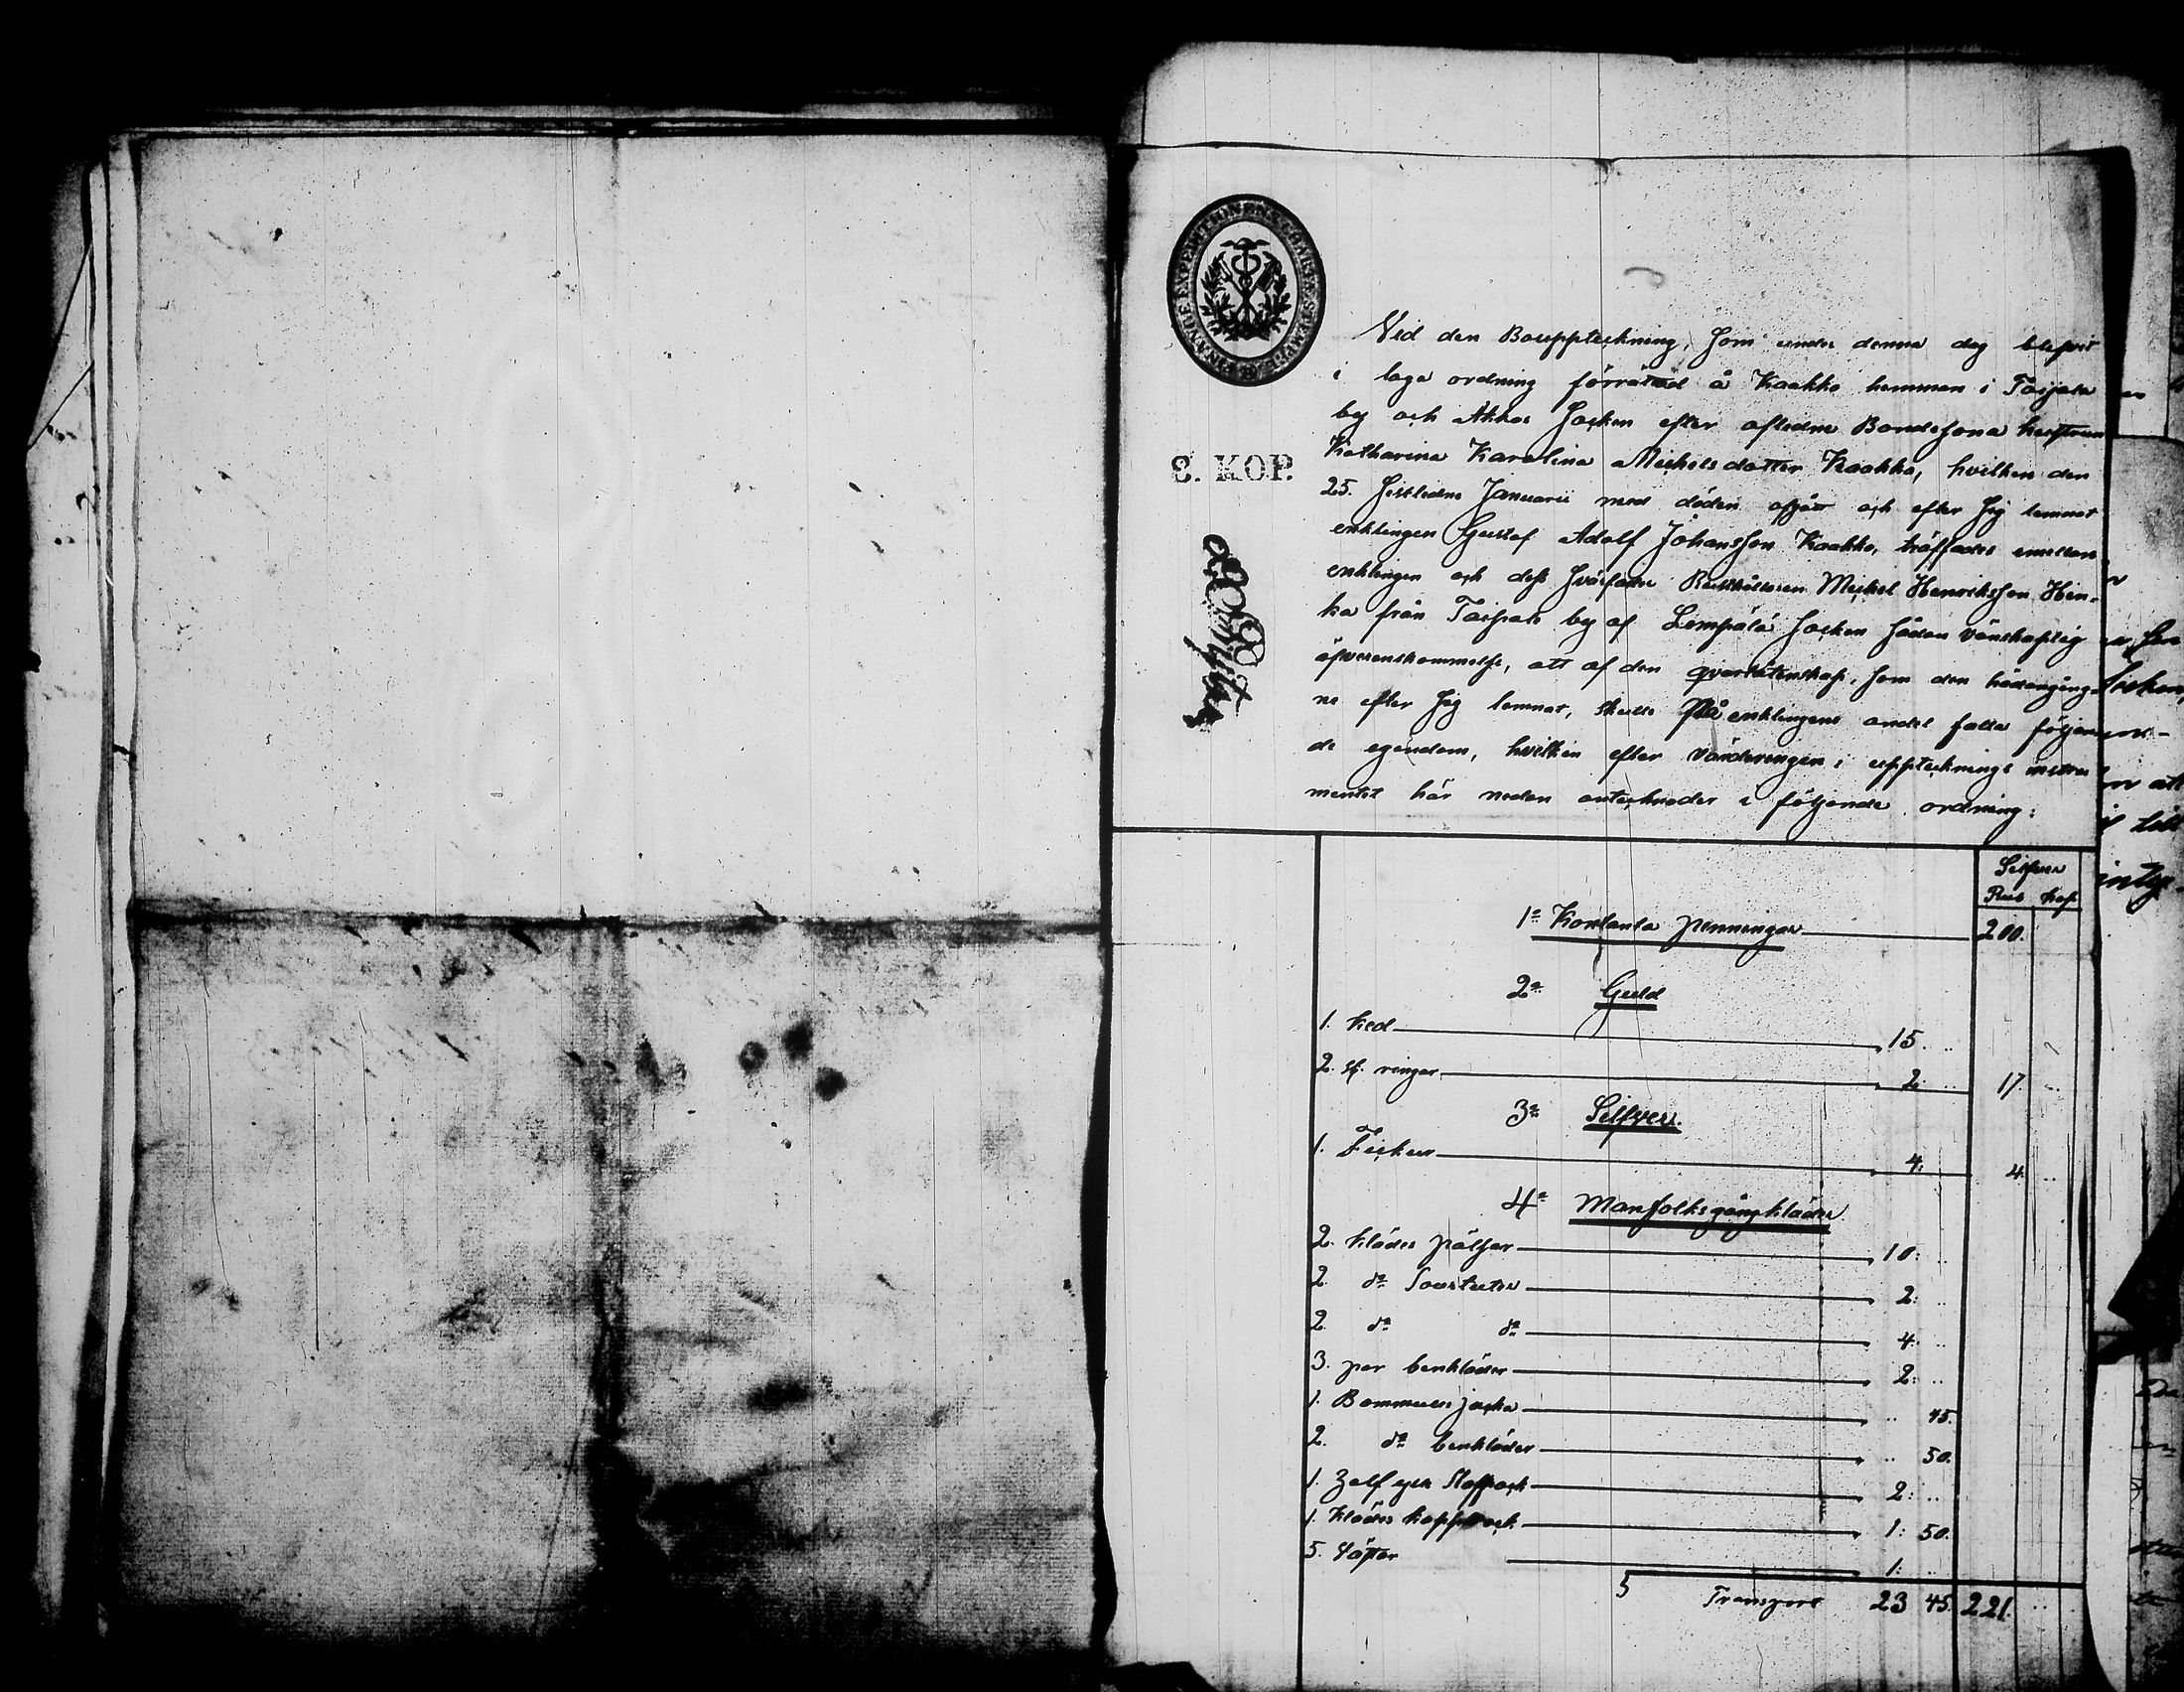 FINANCE EXPEDITIONENS CHARTÆ STEMPEL
3. KOP.
Vid den Bouppteckning, som under denna dag blifvit
i laga ordning förrättad å Kaakko hemman i Taipale
by och Akkas Socken efter aflidne Bondesona hustrun
Katharina Karolina Mickelsdotter Kaakko, hvilken den
25. sistledne Januarii med döden afgått och efter sig lemnat
enklingen Gustaf Adolf Johansson Kaakko, träffades emellan
enklingen och dess svärfader Rusthållaren Mickel Henriksson Hen-
ka från Taipale by af Lempälä Socken sådan vänskaplig
öfverenskommelse, att af den qvarlåtenskap, som den hädangång-
ne efter sig lemnat, skulle på enklingens andel falla följan-
de egendom, hvilken efter värderingen i uppteknings instru
mentet här nedan anteknades i följande ordning:
Silfver
Rub. kop.
1º Kontanta penningar 200.
2º Guld
1. Ked 15. ..
2. st. ringar 2. .. 17. ..
3º Silfver.
1. Fickur 4: 4. ..
4º Manfolks gångkläder.
2. Klädes pälsar 10: ..
2. dº Sourtuter 2: ..
2. dº dº 4: ..
3. par benkläder 2: ..
1. Bommuls jacka .. 45.
2. dº benkläder .. 50.
1. Half ylle 2: ..
1. Klädes kapprock 1: 50.
5. Västar 1: ..
Transport 23 45. 221. ..